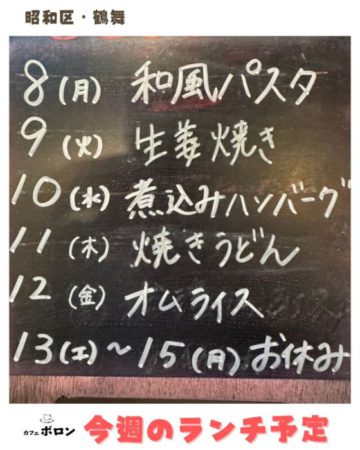 昭和区・鶴舞
8(月) 和風パスタ
9(火) 生姜焼き
10(水) 煮込みハンバーグ
11(木) 焼きうどん
12(金) オムライス
13(土)～15(月)お休み
カフェ ボロン 今週のランチ予定